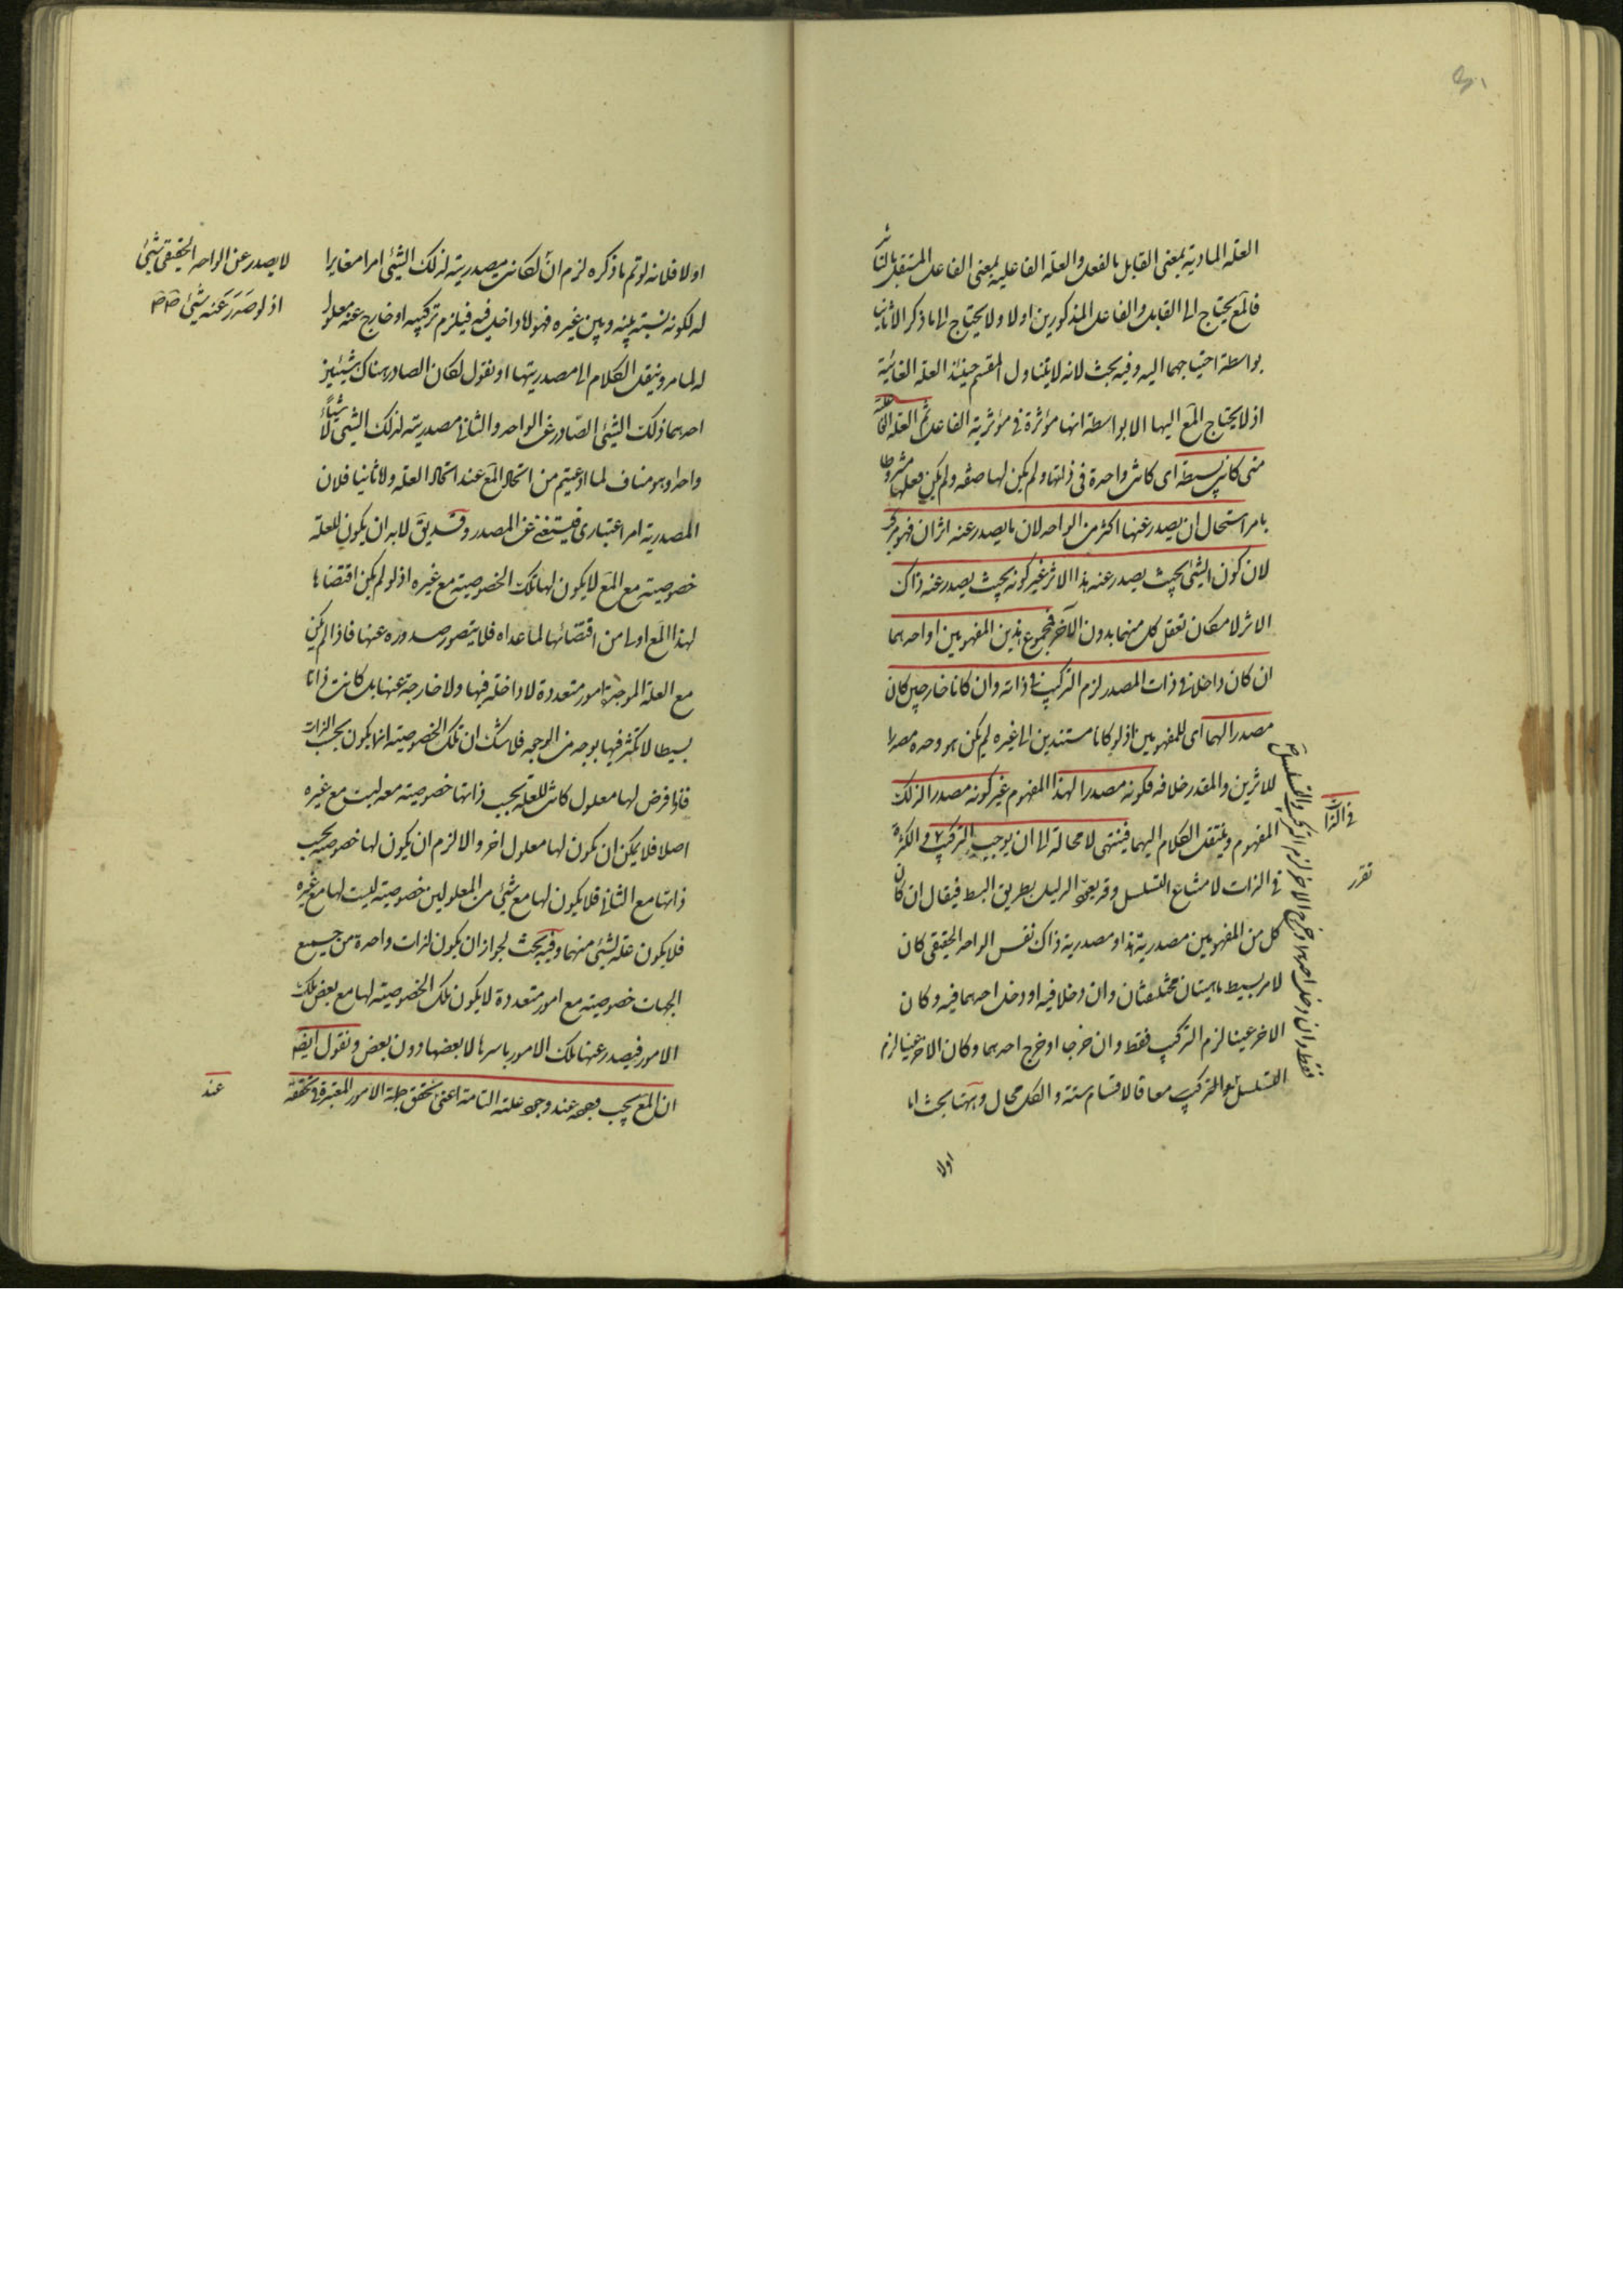 العلة المادية بمعنى القابل بالفعل والعلة الفاعلية بمعنى الفاعل المستقل بالتأثير
فالمع يحتاج الى القابل والفاعل المذكورين اولا ولا يحتاج الى ما ذكر الا ثانيا
بواسطة احتياجهما اليه وفيه بحث لانه لا يتناول المقسم حينئذ العلة الغائية
اذ لا يحتاج المع اليها الا بواسطة انها مؤثرة في مؤثرية الفاعل ثم العلة الفاعلة
متى كانت بسيطة اى كانت واحدة فى ذاتها ولم يكن لها صفه ولم يكن فعلها مشروطا
بامر استحال ان يصدر عنها اكثر من الواحد لان ما يصدر عنه اثران فهو مركب
لان كون الشئ بحيث يصدر عنه هذا الاثر غير كونه بحيث يصدر عنه ذاك
الاثر لامكان تعقل كل منهما بدون الآخر فمجموع هذين المفهومين او احدهما
ان كان داخلا في ذات المصدر لزم التركيب في ذاته وان كانا خارجين كان
مصدرا لهما اى للمفهومين اذ لو كانا مستندين الى غيره لم يكن هو وحده مصدرا
للاثرين والمقدر خلافه فكونه مصدرا لهذا المفهوم غير كونه مصدرا لذلك
المفهوم وينتقل الكلام اليهما فينتهى لا محالة الى ان يوجب التركيب والكثرة
في الذات لامتناع التسلسل وقد يعرر الدليل بطريق البسط فيقال ان كان
كل من المفهومين مصدرية هذا ومصدرية ذاك نفس الواحد الحقيقى كان
لامر بسيط ماهيتان مختلفتان وان دخلا فيه او دخل احدهما فيه وكان
الاخر عينا لزم التركيب فقط وان خرجا او خرج احدهما وكان الاخر عينا لزم
التسلسل والتركيب معا فالاقسام ستة والكل محال وههنا بحث اما
اولا
فقط وان دخل احدهما وخرج الاخر لزم التركيب والتسلسل صح
في الذات
تقرر
اولا فلانه لو تم ما ذكره لزم ان لكانت مصدريته لذلك الشئ امرا مغايرا
له لكونه نسبته بينه وبين غيره فهو لا داخل فيه فيلزم تركيبه او خارج عنه معلول
له لما مر وينقل الكلام الى مصدريتها او نقول لكان الصادر هناك شيئين
احدهما ذلك الشئ الصادر عن الواحد والثاني مصدريته لذلك الشئ لا شيأ
واحدا وهو مناف لما ادعيتم من اتحاد المع عند اتحاد العلة ولا ثانيا فلان
المصدرية امر اعتبارى فيستغنى عن المصدر وقد يق لابد ان يكون للعلة
خصوصية مع المع لا يكون لها تلك الخصوصية مع غيره اذ لو لم يكن اقتضاها
لهذا المع اولى من اقتضائها لما عداه فلا يتصور صدوره عنها فاذا لم يكن
مع العلة الموجدة امور متعددة لا داخلة فيها ولا خارجة عنها بل كانت ذاتا
بسيطا لا تكثر فيها بوجه من الوجه فلا شك ان تلك الخصوصية انما يكون بحسب الذات
فاذا فرض لها معلول كانت للعلة بحسب ذاتها خصوصية معه ليست مع غيره
اصلا فلا يمكن ان يكون لها معلول اخر والا لزم ان يكون لها خصوصية بحسب
ذاتها مع الثاني فلا يكون لها مع شئ من المعلولين خصوصية ليست لها مع غيره
فلا يكون علة لشئ منهما وفيه بحث لجواز ان يكون لذات واحدة من جميع
الجهات خصوصية مع امور متعددة لا يكون تلك الخصوصية لها مع بعض تلك
الامور فيصدر عنها تلك الامور باسرها لا بعضها دون بعض ونقول ايضا
ان المع يجب وجوده عند وجود علته التامة اعنى تحقق جملة الامور المعتبرة في تحققه
لا يصدر عن الواحد الحقيقى شئ
اذ لو صدر عنه شئ صح صح
عند